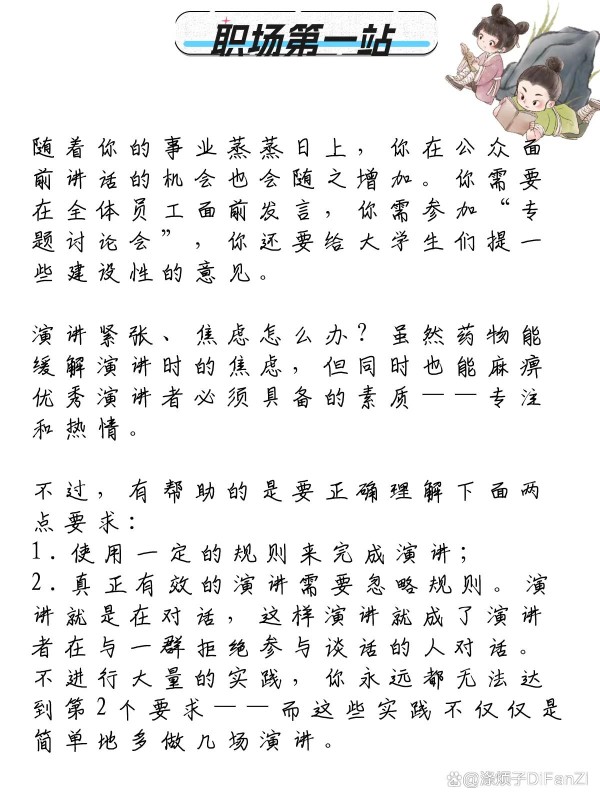 职场第一站
随着你的事业蒸蒸日上，你在公众面
前讲话的机会也会随之增加。你需要
在全体员工面前发言，你需参加“专
题讨论会”，你还要给大学生们提一
些建设性的意见。
演讲紧张、焦虑怎么办？虽然药物能
缓解演讲时的焦虑，但同时也能麻痹
优秀演讲者必须具备的素质——专注
和热情。
不过，有帮助的是要正确理解下面两
点要求：
1.使用一定的规则来完成演讲；
2.真正有效的演讲需要忽略规则。演
讲就是在对话，这样演讲就成了演讲
者在与一群拒绝参与谈话的人对话。
不进行大量的实践，你永远都无法达
到第2个要求——而这些实践不仅仅是
简单地多做几场演讲。
@涤烦子DiFanZi